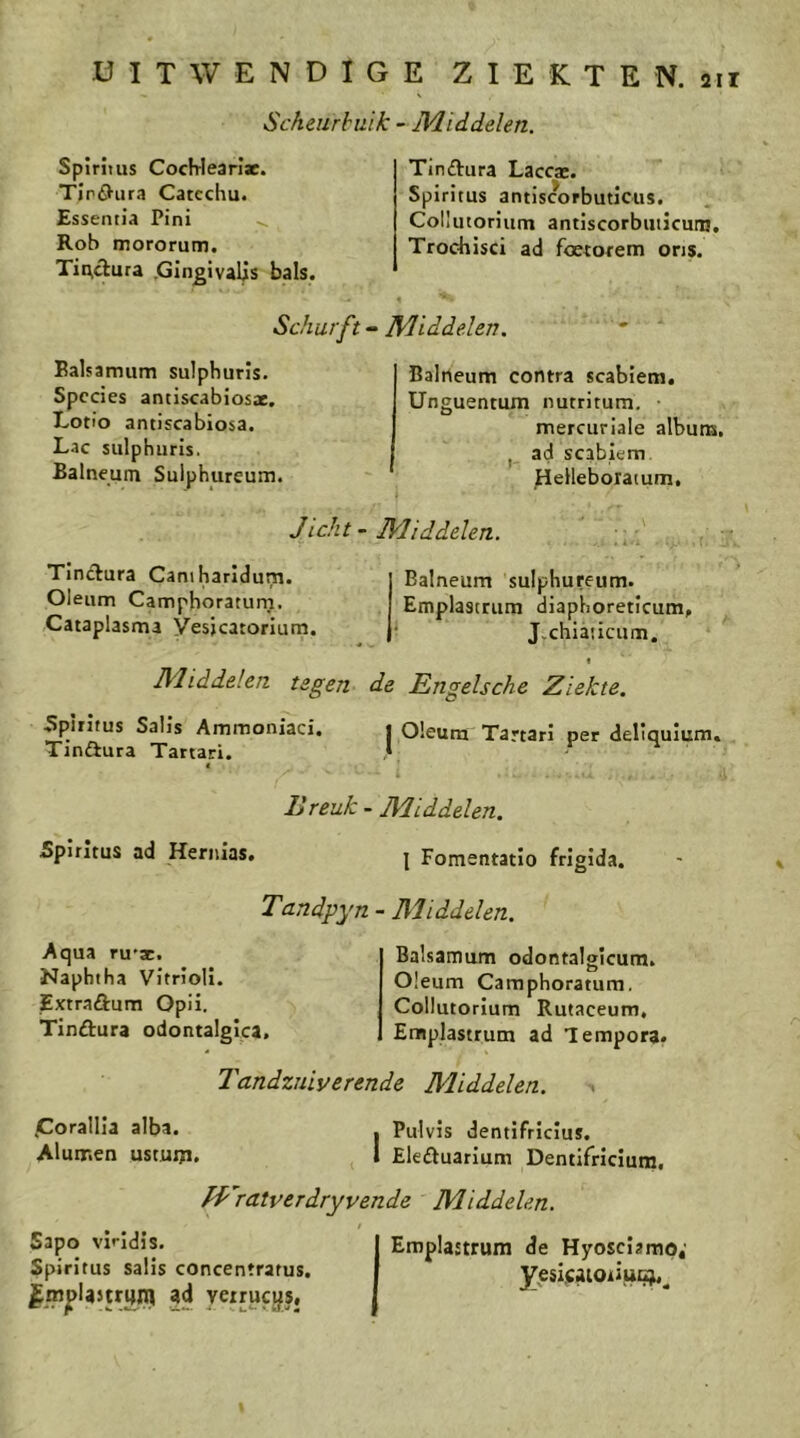 UITWENDIGE ZIEKTEN. 211
Scheurbuik - Middelen.
Spiritus Cochleariæ.
Tinctura Catechu.
Essentia Pini
Rob mororum.
Tinctura Gingivalis bals.
Tinctura Laccæ.
Spiritus antiscorbuticus.
Collutorium antiscorbuticum.
Trochisci ad fœtorem oris.
Schurft - Middelen.
Balsamum sulphuris.
Species antiscabiosæ.
Lotio antiscabiosa.
Lac sulphuris.
Balneum Sulphureum.
Balneum contra scabiem.
Unguentum nutritum.
mercuriale album.
, ad scabiem
Helleboratum.
Jicht - Middelen.
Tinctura Cantharidum.
Oleum Camphoratum.
Cataplasma Vesicatorium.
Balneum sulphureum.
Emplastrum diaphoreticum,
J.chiaticum.
Middelen tegen de Engelsche Ziekte.
Spiritus Salis Ammoniaci.
Tinctura Tartari.
Oleum Tartari per deliquium.
Breuk - Middelen.
Spiritus ad Hernias.
Fomentatio frigida.
Tandpyn - Middelen.
Aqua rutæ.
Naphtha Vitrioli.
Extractum Opii.
Tinctura odontalgica.
Balsamum odontalgicum.
Oleum Camphoratum.
Collutorium Rutaceum.
Emplastrum ad Tempora.
Tandzuiverende Middelen.
Corallia alba.
Alumen ustum.
Pulvis dentifricius.
Electuarium Dentifricium.
Wratverdryvende Middelen.
Sapo viridis.
Spiritus salis concentratus.
Emplastrum ad verrucus.
Emplastrum de Hyosciamo,
Vesicatorium.